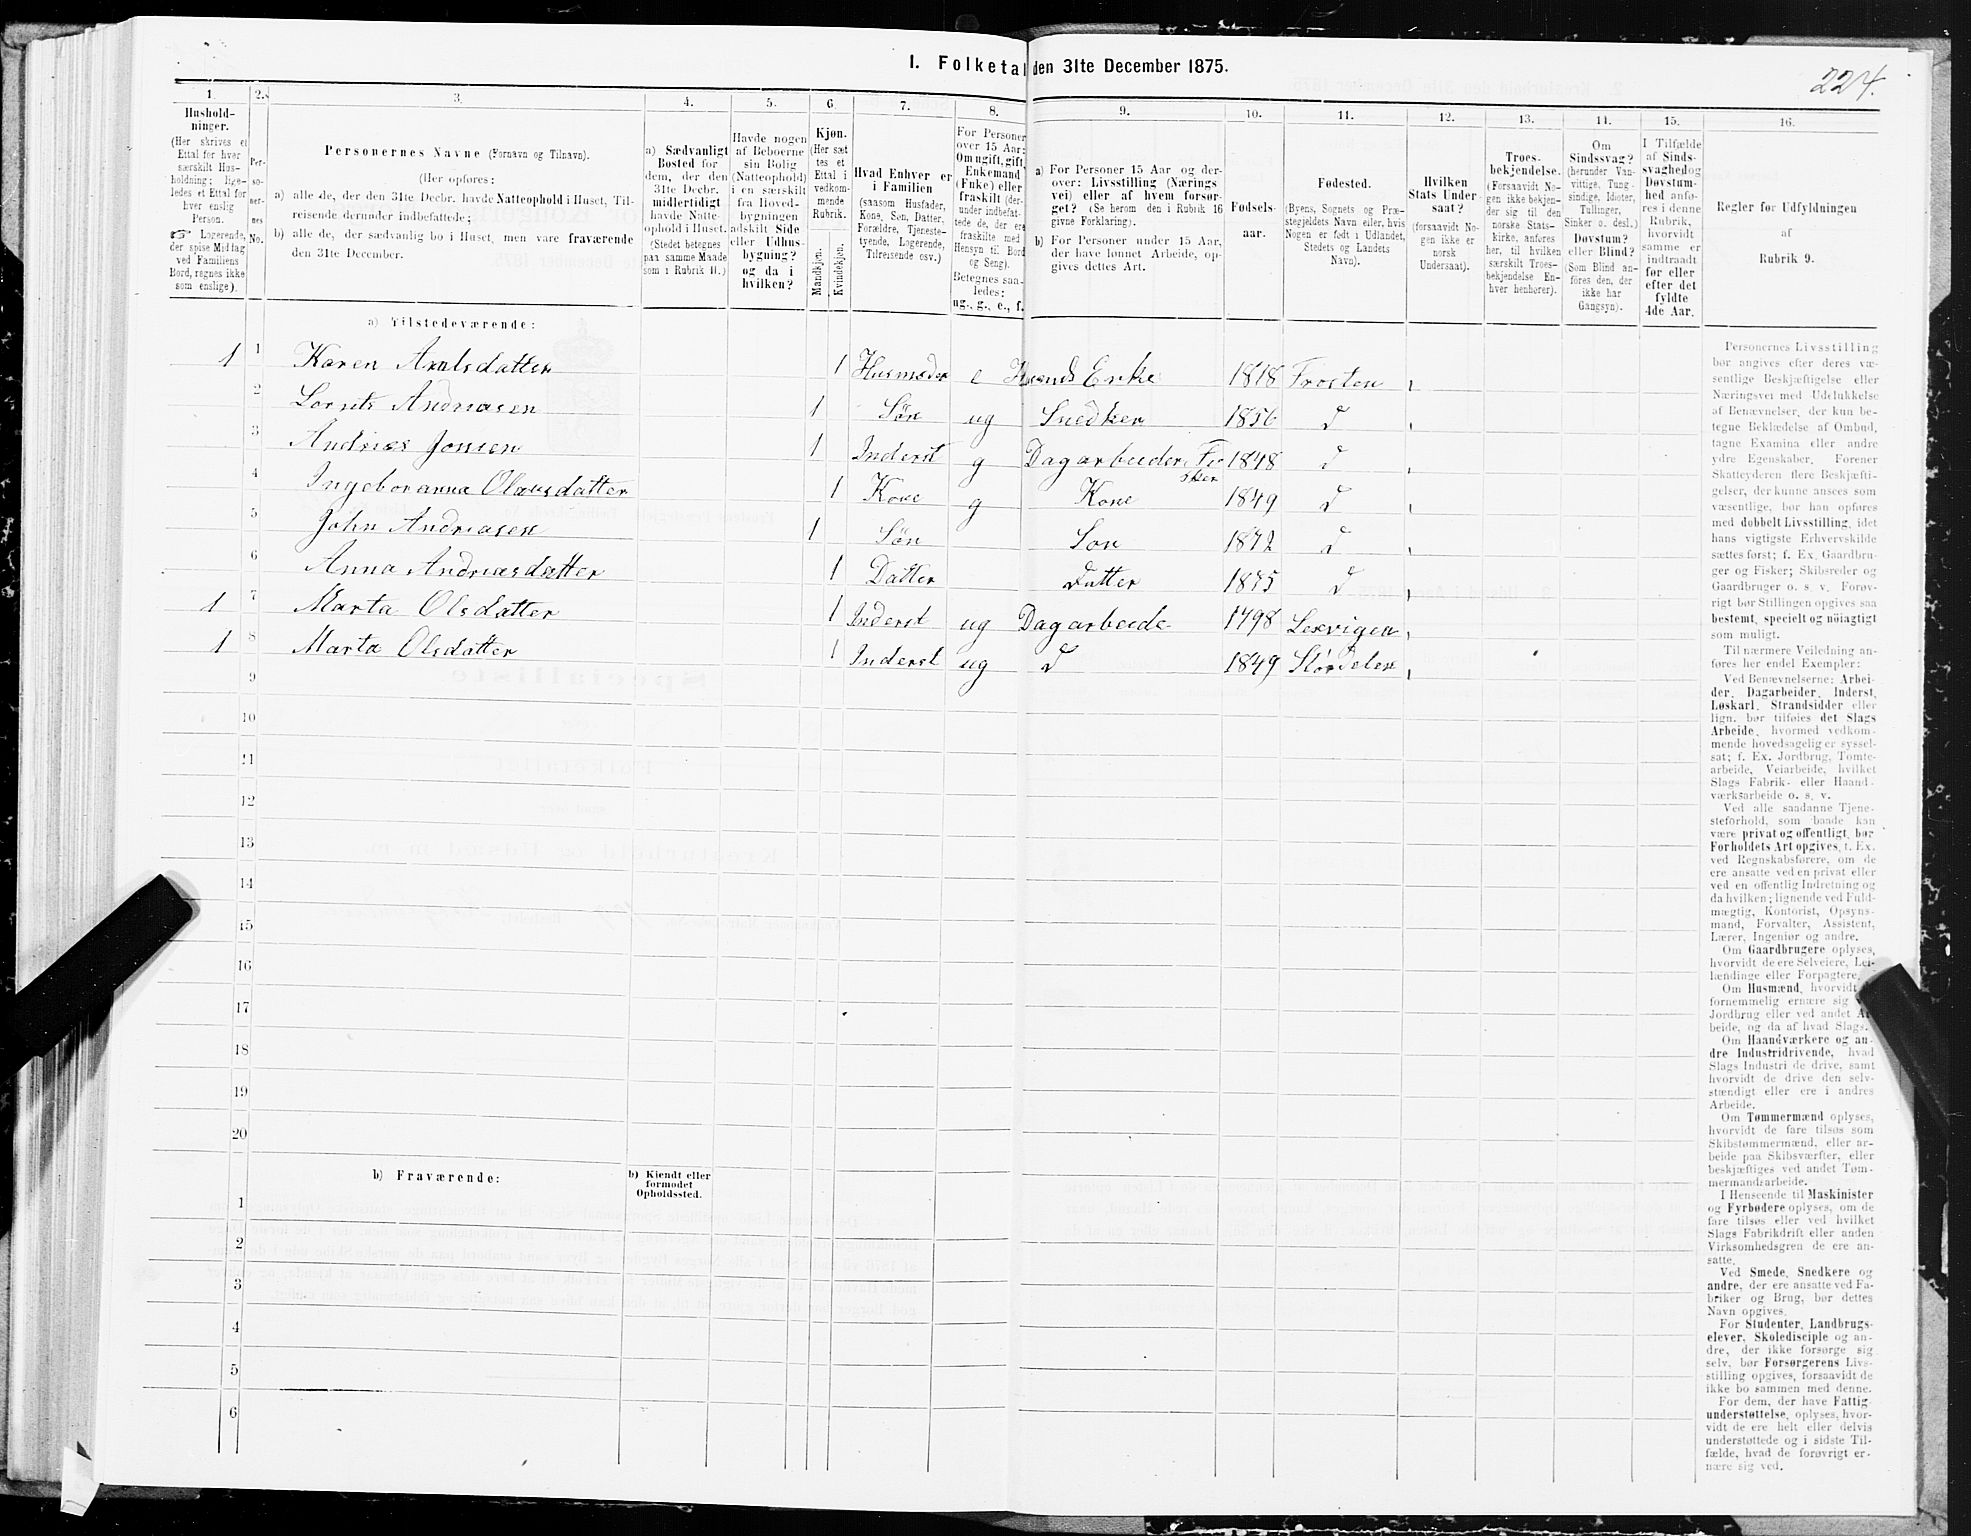 I. Folketal den 31te December 1875.
224.
1.
2.
3.
4.
5.
6.
7.
8.
9.
10.
11.
12.
13.
14.
15.
16.
Hushold-
ninger.
(Her skrives et
Ettal for hver
særskilt Hus-
holdning; lige-
ledes et Ettal for
hver enslig
Person.
☞ Logerende,
der spise Middag
ved Familiens
Bord, regnes ikke
som enslige).
Per-
so-
ner-
nes
No.
Personernes Navne (Fornavn og Tilnavn).
(Her opføres:
a) alle de, der den 31te Decbr. havde Natteophold i Huset, Til-
reisende derunder indbefattede;
b) alle de, der sædvanlig bo i Huset, men vare fraværende
den 31te December.
a) Sædvanligt
Bosted for
dem, der den
31te Decbr.
midlertidigt
havde Natte-
ophold i Huset.
(Stedet betegnes
paa samme Maade
som i Rubrik 11.)
Havde nogen
af Beboerne
sin Bolig
(Natteophold)
i en særskilt
fra Hoved-
bygningen
adskilt Side
eller Udhus-
bygning?
og da i
hvilken?
Kjøn.
(Her sæt
tes et
Ettal i
vedkom-
mende
Rubrik.
Mandkjøn.
Kvindekjøn.
Hvad Enhver er
i Familien
(saasom Husfader,
Kone, Søn, Datter,
Forældre, Tjeneste-
tyende, Logerende,
Tilreisende osv.)
For Personer
over 15 Aar:
Om ugift, gift,
Enkemand
(Enke) eller
fraskilt (der-
under indbefat-
tede de, der ere
fraskilte med
Hensyn til Bord
og Seng).
Betegnes saa-
ledes:
ug., g., e., f.
a) For Personer 15 Aar og der-
over: Livsstilling (Nærings
vei) eller af hvem forsør-
get? (Se herom den i Rubrik 16
givne Forklaring).
b) For Personer under 15 Aar,
der have lønnet Arbeide, op-
gives dettes Art.
Fødsels-
aar.
Fødested.
(Byens, Sognets og Præ-
stegjeldets Navn eller, hvis
Nogen er født i Udlandet,
Stedets og Landets
Navn).
Hvilken
Stats Under-
saat?
(forsaavidt No-
gen ikke er
norsk
Undersaat).
Troes-
bekjendelse.
(Forsaavidt No-
gen ikke bekjen-
der sig til den
norske Stats-
Kirke, anføres
her, til hvilken
særskilt Troes-
bekjendelse En-
hver henhører).
Om
Sindssvag?
(herunder Van-
vittige, Tung-
sindige, Idioter,
Tullinger,
Sinker o. desl.)
Døvstum?
eller Blind?
(Som Blind an-
føres den, der
ikke har
Gangsyn).
I Tilfælde
af Sinds-
svaghed og
Døvstum-
hed anfø-
res i denne
Rubrik,
hvorvidt
samme er
indtraadt
før eller
efter det
fyldte
4de Aar.
Regler for Udfyldningen
af
Rubrik 9.
a) Tilstedeværende:
1 1 Karen 1 Husmoder e Enke 1818 Frosten
2 Andreasen 1 Søn ug Snedker 1856 d
3 Andreas Jonsen 1 Inderst g Dagarbeider, Fi-
sker 1848 d
4 Ingeboranna Olausdatter 1 Kone g Kone 1849 d
5 John Andreasen 1 Søn Søn 1872 d
6 Anna Andreasdatter 1 Datter Datter 1875 d
1 7 Marta Olsdatter 1 Inderst ug Dagarbeide 1798 Lexvigen
1 8 Marta Olsdatter 1 Inderst ug d 1849 Størdelen
9
10
11
12
13
14
15
16
17
18
19
20
b) Fraværende:
b) Kjendt eller
formodet
Opholdssted.
1
2
3
4
5
6
Personernes Livsstilling
bør angives efter deres væ-
sentlige Beskjæftigelse eller
Næringsvei med Udelukkelse
af Benævnelser, der kun be-
tegne Beklædelse af Ombud,
tagne Examina eller andre
ydre Egenskaber. Forener
Skatteyderen flere Beskjæfti-
gelser, der kunne ansees som
væsentlige, bør han opføres
med dobbelt Livsstilling, idet
hans vigtigste Erhvervskilde
sættes først; f. Ex. Gaardbru-
ger og Fisker; Skibsreder og
Gaardbruger o. s. v. Forøv-
rigt bør Stillingen opgives saa
bestemt, specielt og nøiagtigt
som muligt.
Til nærmere Veiledning an-
føres her endel Exempler:
Ved Benævnelserne: Arbei-
der, Dagarbeider, Inderst,
Løskarl, Strandsidder eller
lign. bør tilføies det Slags
Arbeide, hvormed vedkom-
mende hovedsagelig er syssel-
sat; f. Ex. Jordbrug, Tomte-
arbeide, Veiarbeide, hvilket
Slags Fabrik- eller Haand-
værksarbeide o. s. v.
Ved alle saadanne Tjene-
steforhold, som baade kan
være privat og offentligt, bør
Forholdets Art opgives, f. Ex.
ved Regnskabsførere, om de
ere ansatte ved en privat eller
ved en offentlig Indretning og
da hvilken; lignende ved Fuld-
mægtig, Kontorist, Opsyns-
mand, Forvalter, Assistent,
Lærer, Ingeniør og andre.
Om Gaardbrugere oplyses,
hvorvidt de ere Selveiere, Lei-
lændinge eller Forpagtere.
Om Husmænd, hvorvidt
fornemmelig ernære sig
Jordbrug eller ved andet Ar-
beide, og da af hvad Slags.
Om Haandværkere og an-
dre Industridrivende, hvad
Slags Industri de drive, samt
hvorvidt de drive den selv-
stændigt eller ere i andres
Arbeide.
Om Tømmermænd oplyses,
hvorvidt de fare tilsøs som
Skibstømmermænd, eller ar-
beide paa Skibsværfter, eller
beskjæftiges ved andet Tøm-
mermandsarbeide.
I Henseende til Maskinister
og Fyrbødere oplyses, om de
fare tilsøs eller ved hvilket
Slags Fabrikdrift eller anden
Virksomhedsgren de ere an-
satte.
Ved Smede, Snedkere og
andre, der ere ansatte ved Fa-
briker og Brug, bør dettes
Navn opgives.
For Studenter, Landbrugs-
elever, Skoledisciple og an-
dre, der ikke forsørge sig
selv, bør Forsørgerens Livs-
stilling opgives, forsaavidt de
ikke bo sammen med denne.
For dem, der have Fattig-
understøttelse, oplyses, hvor-
vidt de ere helt eller delvis
understøttede og i sidste Til-
fælde, hvad de forøvrigt er-
nære sig ved.